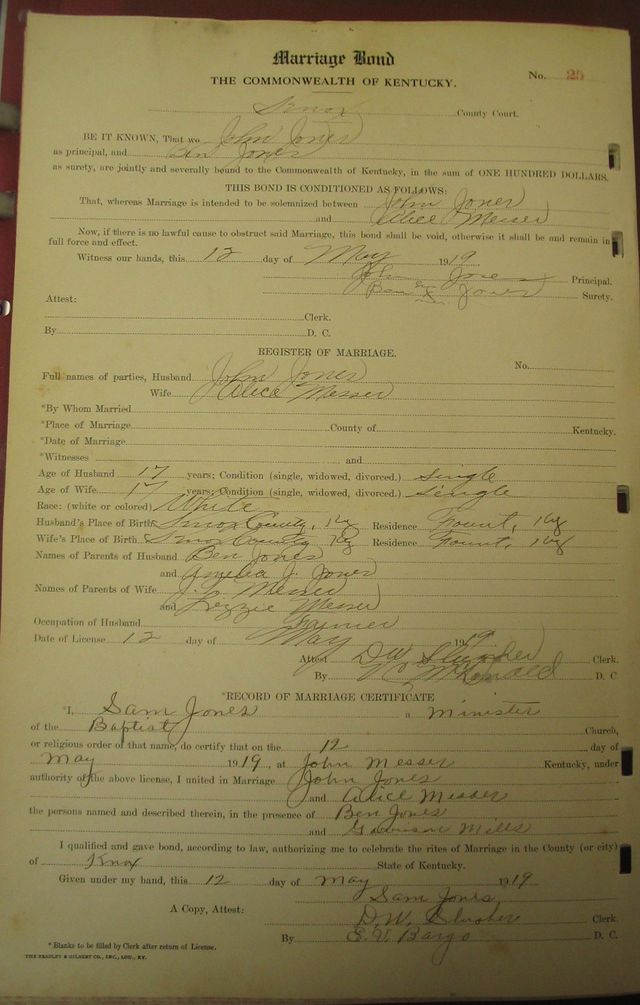 Marriage Bond
THE COMMONWEALTH OF KENTUCKY.
No. 25
Knox County Court.
BE IT KNOWN, That we John Jones
as principal, and Ben Jones
as surety, are jointly and severally bound to the Commonwealth of Kentucky, in the sum of ONE HUNDRED DOLLARS.
THIS BOND IS CONDITIONED AS FOLLOWS:
That, whereas Marriage is intended to be solemnized between John Jones
and Alice Messer
Now, if there is no lawful cause to obstruct said Marriage, this bond shall be void, otherwise it shall be and remain in
full force and effect.
Witness our hands, this 12 day of May 1919
John Jones Principal.
Ben X Jones Surety.
Attest:
Clerk.
By D. C.
REGISTER OF MARRIAGE.
No.
Full names of parties, Husband John Jones
Wife Alice Messer
*By Whom Married
*Place of Marriage County of Kentucky.
*Date of Marriage
*Witnesses and
Age of Husband 17 years; Condition (single, widowed, divorced.) Single
Age of Wife 17 years; Condition (single, widowed, divorced.) Single
Race: (white or colored) White
Husband's Place of Birth Knox County, Ky Residence Fount, Ky
Wife's Place of Birth Knox County Ky Residence Fount, Ky
Names of Parents of Husband Ben Jones
and Amelia J. Jones
Names of Parents of Wife J. Messer
and Lizzie Messer
Occupation of Husband Farmer
Date of License 12 day of May 1919
Attest D W Slusher Clerk.
By McDonald D. C
*RECORD OF MARRIAGE CERTIFICATE
*I, Sam Jones a Minister
of the Baptist Church,
or religious order of that name, do certify that on the 12 day of
May 1919, at John Messer Kentucky, under
authority of the above license, I united in Marriage John Jones
and Alice Messer
the persons named and described therein, in the presence of Ben Jones
and Mills
I qualified and gave bond, according to law, authorizing me to celebrate the rites of Marriage in the County (or city)
of Knox State of Kentucky.
Given under my hand, this 12 day of May 1919
Sam Jones
A Copy, Attest: D. W. Slusher Clerk.
By E. V. Bargo D. C.
*Blanks to be filled by Clerk after return of License.
THE BRADLEY & GILBERT CO., INC., LOU., KY.